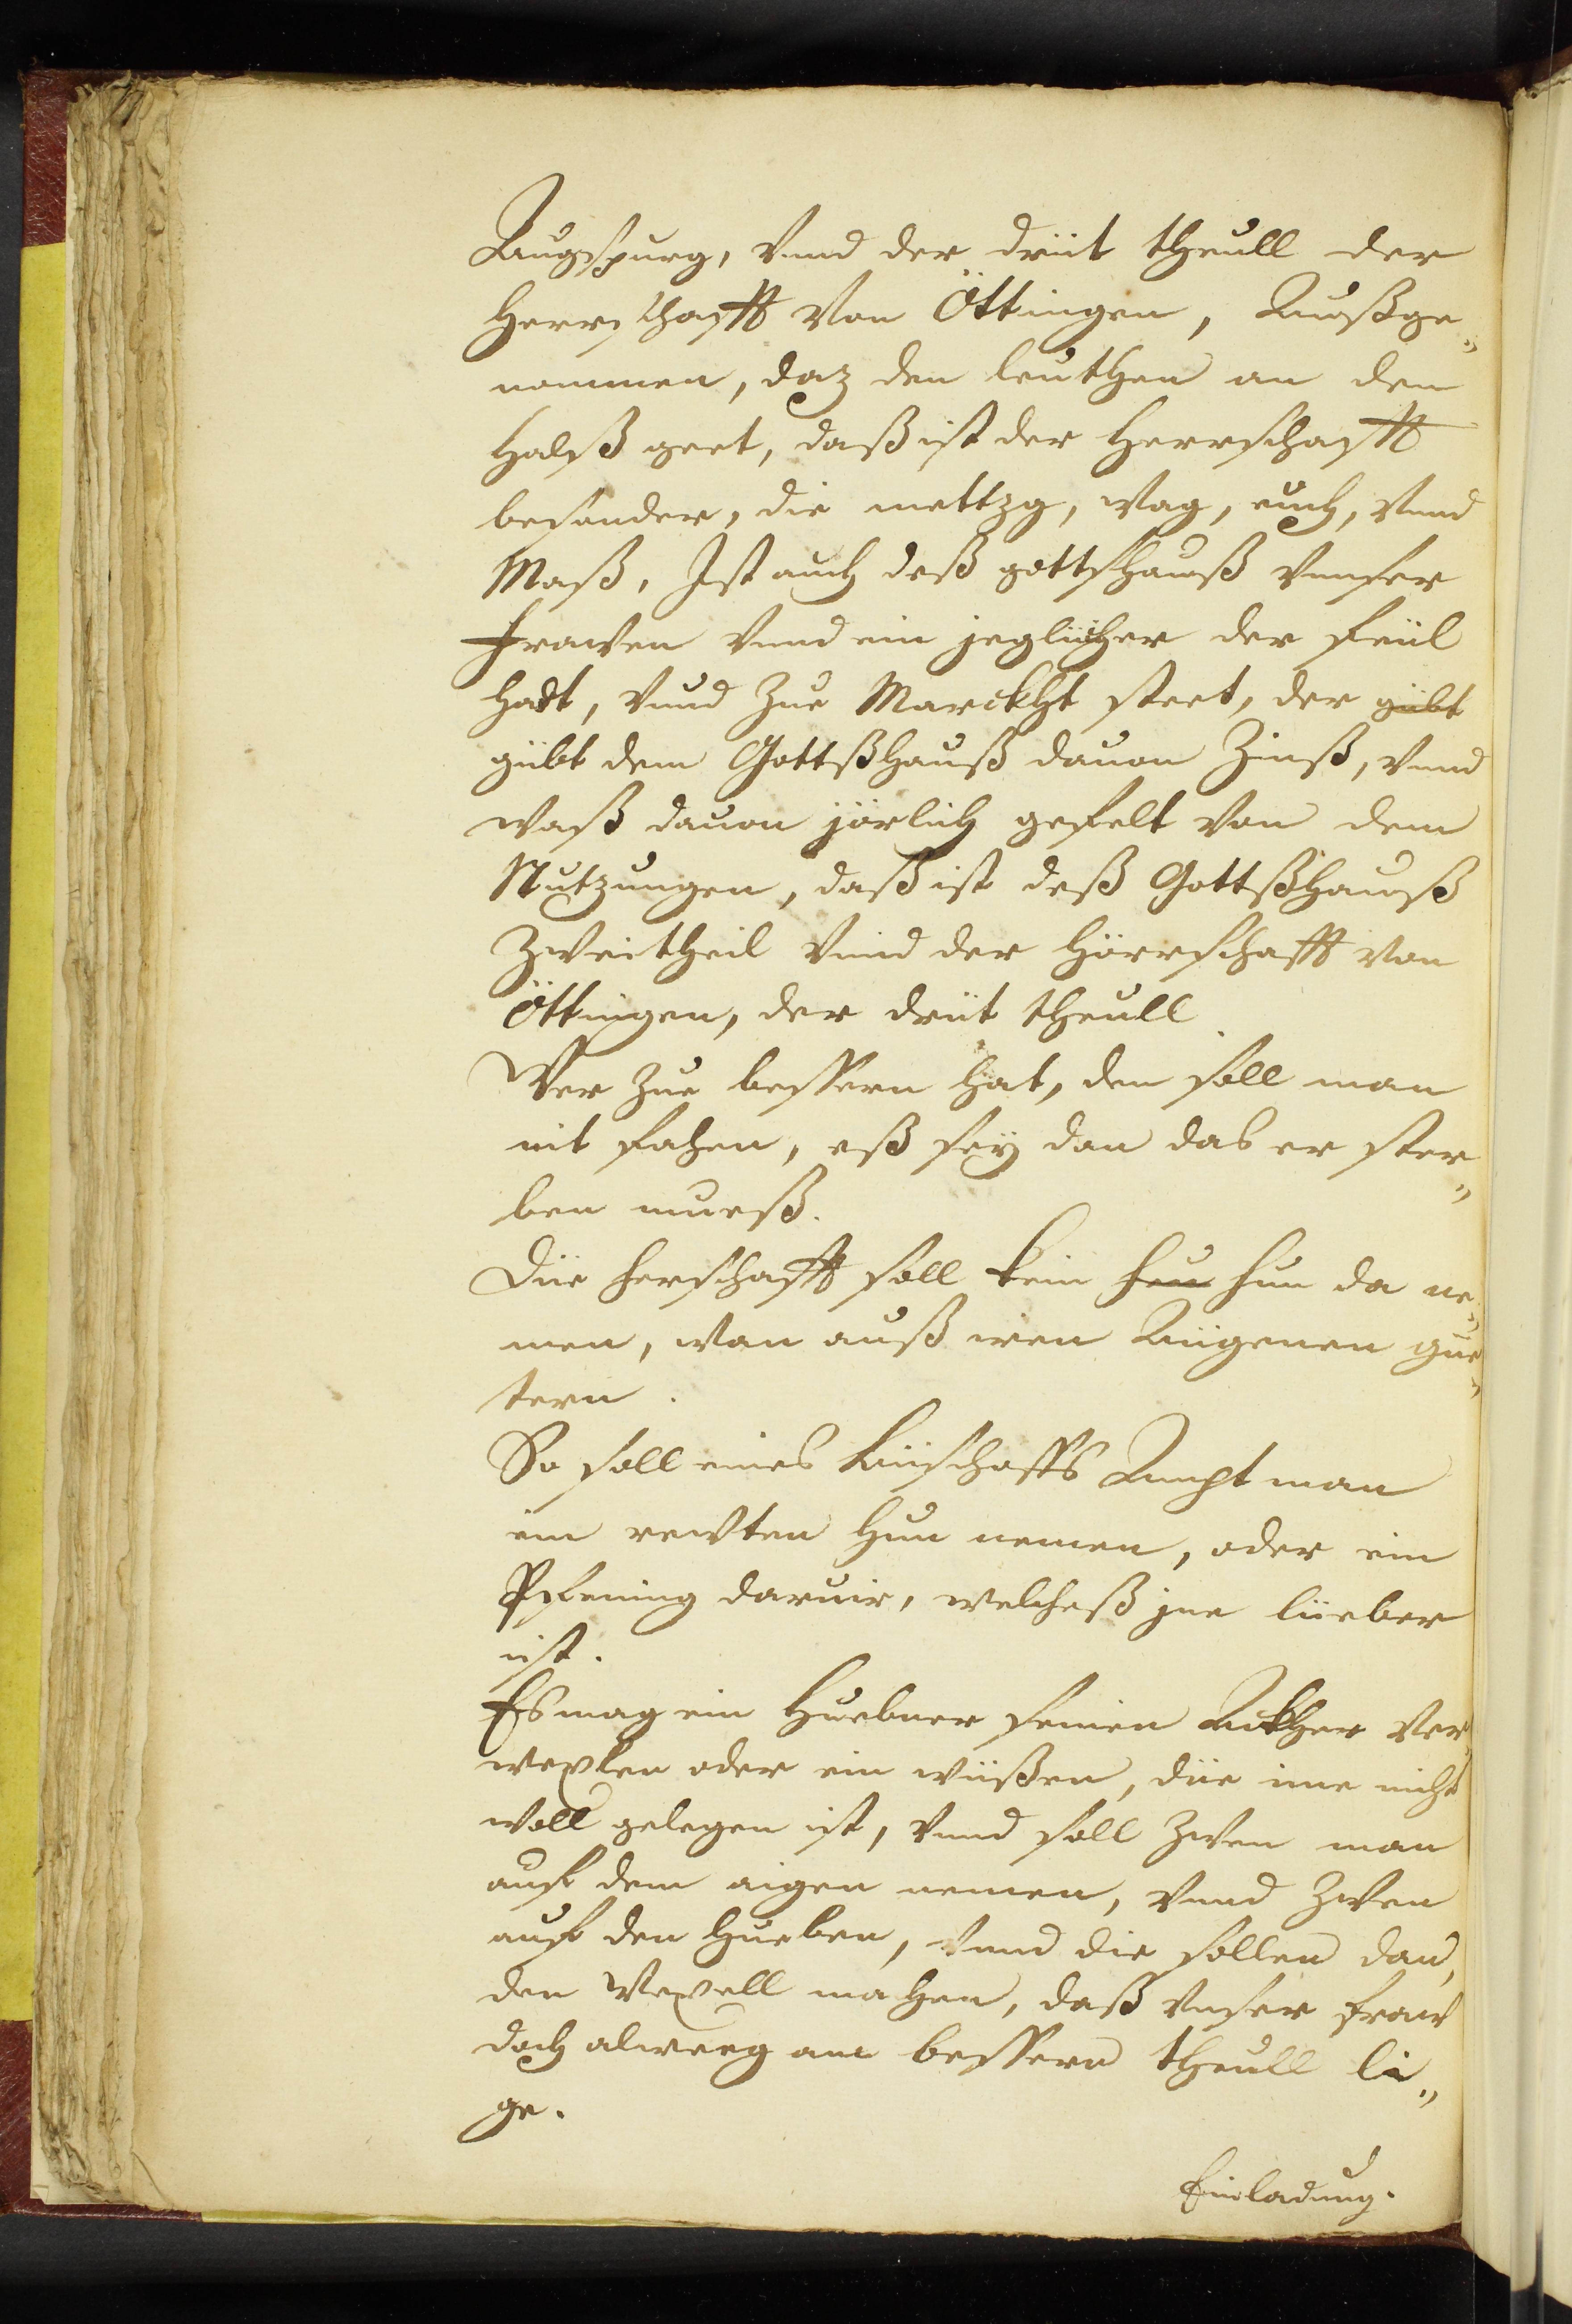 Augspurg, Vnnd der driit theüll der
Herrschafft Von Öttingen, Außge„
nommen, daz den leüthen an den
Halß geet, daß ist der Herrschafft
besonder, die mettzg, wag, euch, Vnnd
Maß, Ist auch deß gottshauß Vnnser
Frawen Vnnd ein jeglücher der feül
hatt, Vnnd Zue Marckht steet, der gübt
gübt dem Gottßhauß dauon Zinß, Vnnd
waß dauon jörlich gefelt Von dem
Nutzungen, daß ist deß Gottßhauß
Zweitheil Vnnd der Hörrschafft Von
Öttingen, der driit theüll
Wer Zue bessern hat, den soll man
nit fahen, eß seÿ dan das er ster„
ben mueß.
Düe herschafft soll kein hun da ne„
men, wan auß iren Aügenen güe„
tern.
So soll eines Büschoffs Amptman
ein rewten Hun nemen, oder ein
Pfening daruir, welcheß jne lüeber
ist.
Es mag ein Huebner seinen Ackher Ver„
wexlen oder ein wüßen, düe ime nicht
woll gelegen ist, Vnnd soll Zwen man
auf dem aigen nemen, Vnnd Zwen
auf den Hueben, Vnnd die sollen dan,
den Wexell machen, daß Vnser fraw
doch alweeg am bessern theüll li„
ge.
Einladung.